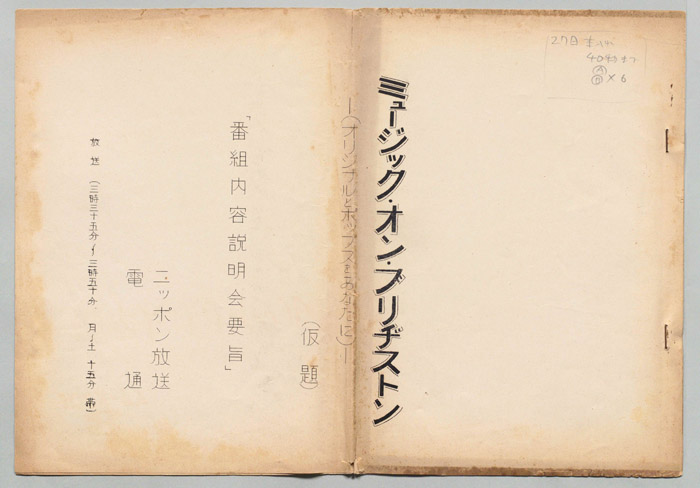 27日
40秒
Ⓐ
Ⓑ×6
ミュージック・オン・ブリヂストン
―(オリジナルとポップスをあなたに)―
(仮題)
「番組内容説明会要旨」
ニッポン放送
電通
放送(三時三十五分〜三時五十分、月〜土 十五分 帯)